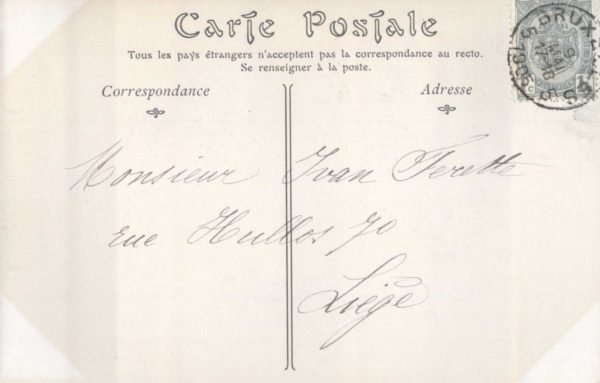 Carte Postale
Tous les pays étrangers n'acceptent pas la correspondance au recto.
Se renseigner à la poste.
Correspondance
Adresse
Monsieur Ivan Ferette
rue Hullos 70
Liège